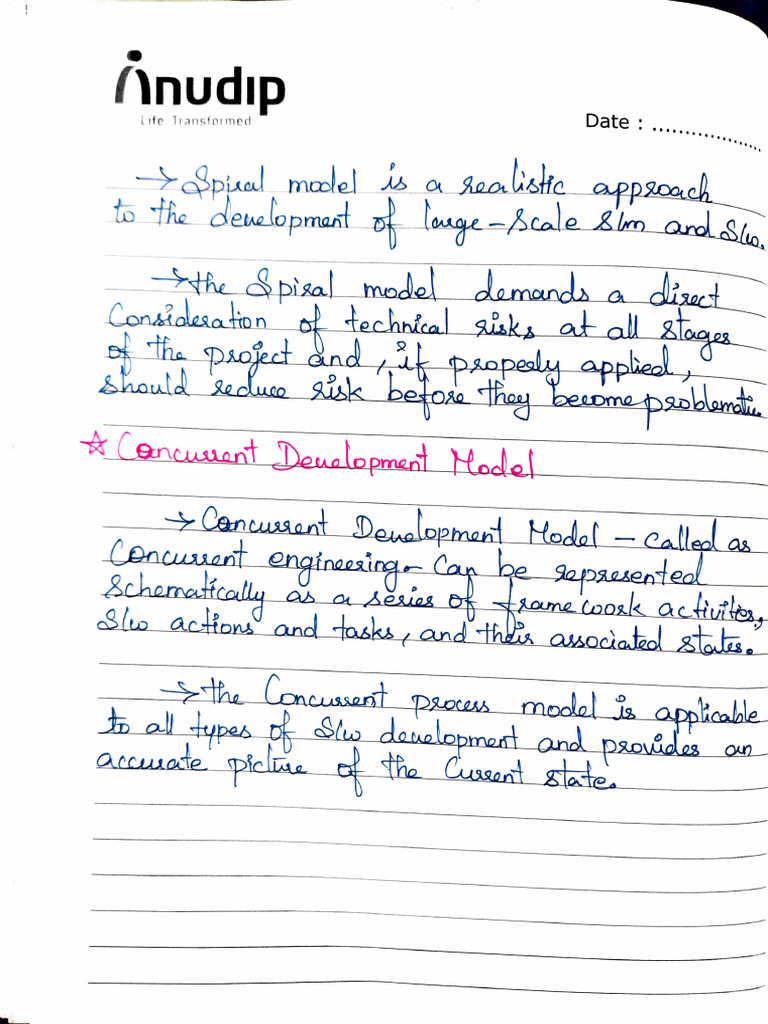 Anudip
Life Transformed
Date : ...................
→ Spiral model is a realistic approach
to the development of large-scale S/m and S/w.
→ the Spiral model demands a direct
Consideration of technical risks at all stages
of the project and, if properly applied,
should reduce risk before they become problematic.
☆ Concurrent Development Model
→ Concurrent Development Model - called as
Concurrent engineering - Can be represented
Schematically as a series of framework activities,
S/w actions and tasks, and their associated states.
→ the Concurrent process model is applicable
to all types of S/w development and provides an
accurate picture of the Current state.